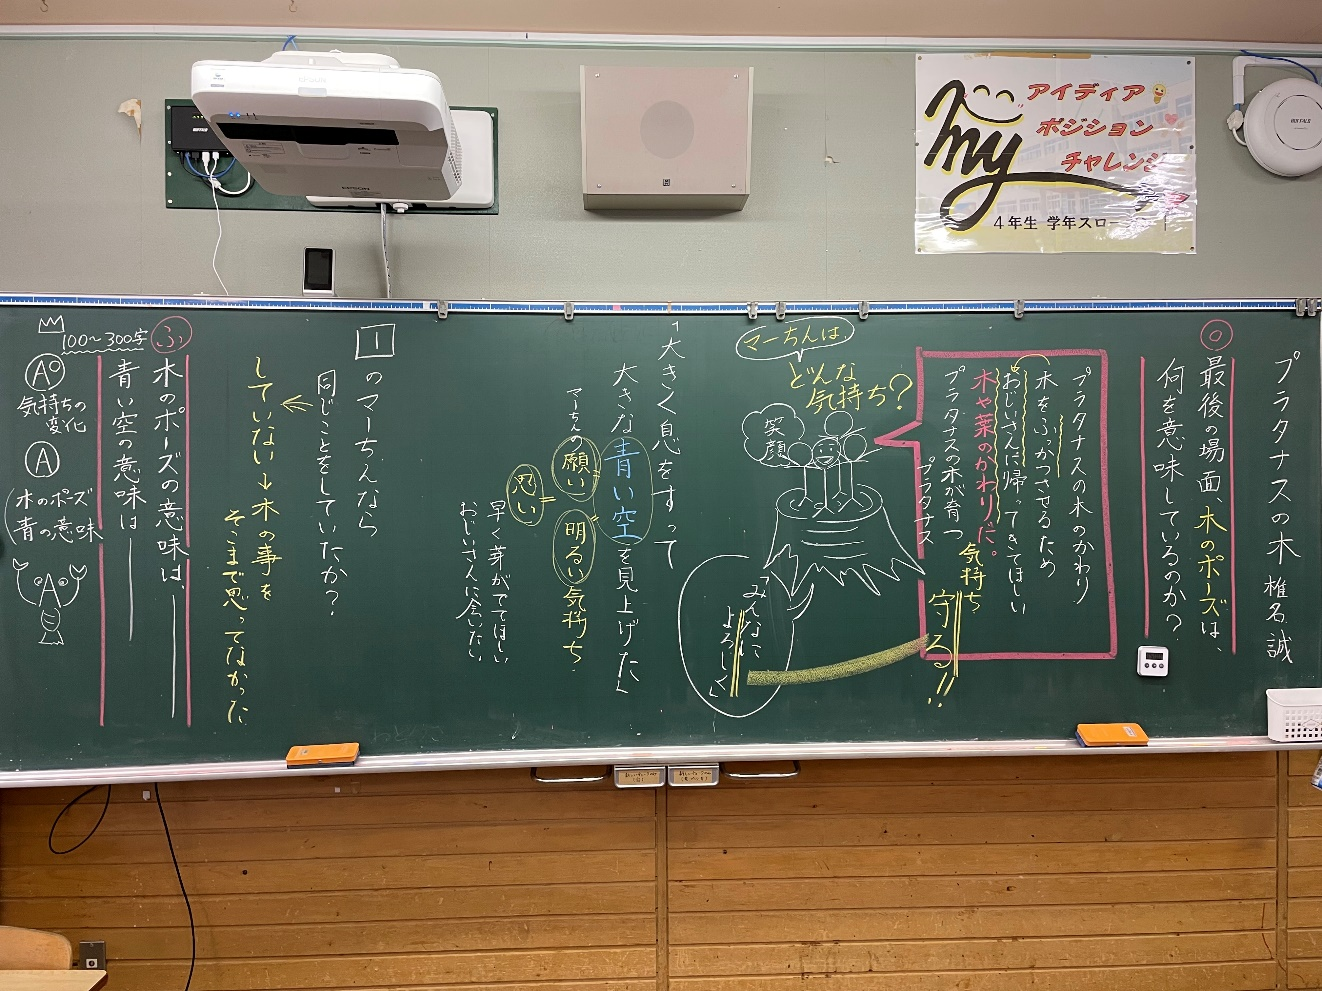 アイディア
ポジション
チャレンジ
my
4年生 学年スロー
BUFFALO
EPSON
プラタナスの木 椎名誠
◎
最後の場面、木のポーズは、
何を意味しているのか?
プラタナスの木のかわり
木をふっかつさせるため
おじいさんに帰ってきてほしい
木や葉のかわりだ。
気持ち
プラタナスの木が育つ
プラタナス
守る!!
マーちんは
どんな
気持ち?
笑顔
「みんなに
よろしく」
「大きく息をすって
大きな青い空を見上げた」
マーちんの願い 明るい気持ち
思い
早く芽がでてほしい
おじいさんに会いたい
1のマーちんなら
同じことをしていたか?
していない→木の事を
そこまで思ってなかった
ふ
木のポーズの意味は、
青い空の意味は
100〜300字
A○
気持ちの
変化
A
木のポーズ
青の意味
A